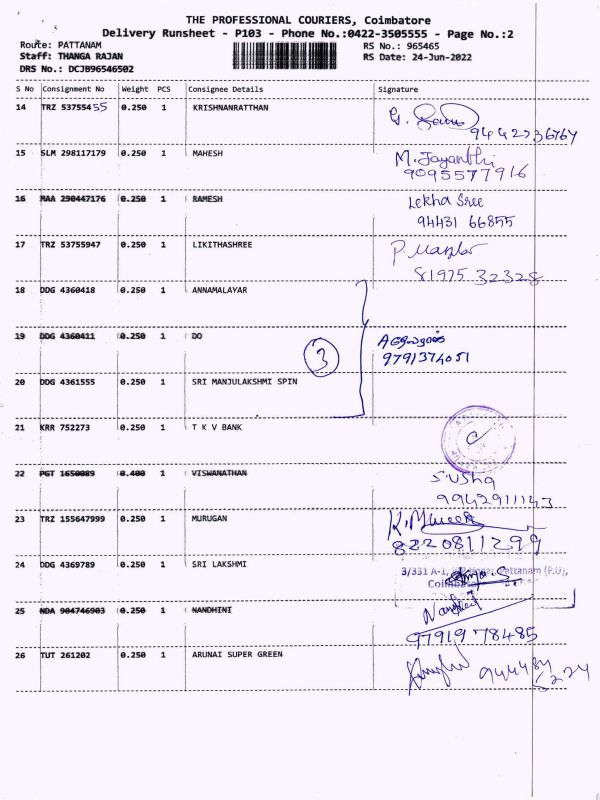 THE PROFESSIONAL COURIERS, Coimbatore
Delivery Runsheet - P103 - Phone No.:0422-3505555 - Page No.:2
Route: PATTANAM RS No.: 965465
Staff: THANGA RAJAN RS Date: 24-Jun-2022
DRS No.: DCJB96546502
S No Consignment No Weight PCS Consignee Details Signature
14 TRZ 53755455 0.250 1 KRISHNANRATTHAN
9442236764
15 SLM 298117179 0.250 1 MAHESH M. Jayanthi
9095577916
16 MAA 290447176 0.250 1 RAMESH Lekha Sree
94431 66855
17 TRZ 53755947 0.250 1 LIKITHASHREE
81975 32328
18 DDG 4360418 0.250 1 ANNAMALAYAR
19 DDG 4360411 0.250 1 DO
3 9791374051
20 DDG 4361555 0.250 1 SRI MANJULAKSHMI SPIN
21 KRR 752273 0.250 1 T K V BANK
22 PGT 1650089 0.400 1 VISWANATHAN S.Usha
9942911143
23 TRZ 155647999 0.250 1 MURUGAN
8220811299
24 DDG 4369789 0.250 1 SRI LAKSHMI
3/331 A-1, Pattanam (P.O),
25 NDA 904746903 0.250 1 NANDHINI
97919 78485
26 TUT 261202 0.250 1 ARUNAI SUPER GREEN